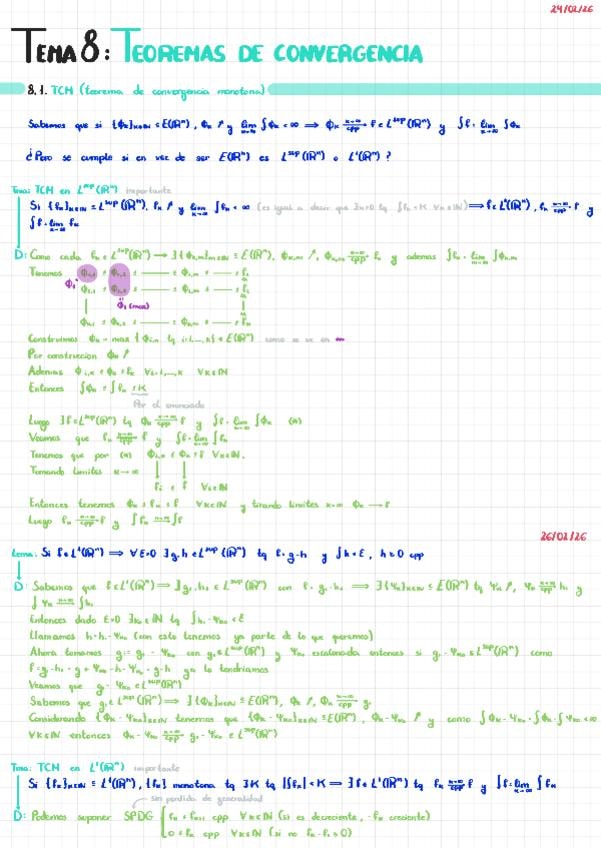 24/02/26
TEMA 8: TEOREMAS DE CONVERGENCIA
8.1. TCM (teorema de convergencia monotona)
Sabemos que si {ϕₖ}ₖ∈ℕ ⊆ E(ℝⁿ), ϕₖ ↗ y lim ∫ϕₖ < ∞ ⟹ ϕₖ → f ∈ Lˢᵘᵖ(ℝⁿ) y ∫f = lim ∫ϕₖ
¿Pero se cumple si en vez de ser E(ℝⁿ) es Lˢᵘᵖ(ℝⁿ) o L¹(ℝⁿ)?
Tma: TCM en Lˢᵘᵖ(ℝⁿ) importante
Si {fₖ}ₖ∈ℕ ⊆ Lˢᵘᵖ(ℝⁿ), fₖ ↗ y lim ∫fₖ < ∞ (es igual a decir que ∃K>0 tq ∫fₖ < K ∀k∈ℕ) ⟹ f∈
∫f = lim fₖ
D: Como cada fₖ ∈ Lˢᵘᵖ(ℝⁿ) → ∃{ϕₖ,ₘ}ₘ∈ℕ ⊆ E(ℝⁿ), ϕₖ,ₘ ↗, ϕₖ,ₘ → fₖ y ademas ∫fₖ = lim ∫ϕₖ,ₘ
Tenemos
ϕ₁ (max)
Construimos ϕₖ = max {ϕᵢ,ₖ tq i=1,...,k} ∈ E(ℝⁿ) como se ve en
Por construccion ϕₖ ↗
Ademas ϕᵢ,ₖ ≤ ϕₖ ≤ fₖ ∀i=1,...,k ∀k∈ℕ
Entonces ∫ϕₖ ≤ ∫fₖ ≤ K
Por el enunciado
Luego ∃f∈Lˢᵘᵖ(ℝⁿ) tq ϕₖ → f y ∫f = lim ∫ϕₖ (*)
Veamos que fₖ → f y ∫f = lim ∫fₖ
Tenemos que por (*) ϕᵢ,ₖ ≤ ϕₖ ≤ f ∀k∈ℕ.
Tomando limites k→∞
fᵢ ≤ f ∀i∈ℕ
Entonces tenemos ϕₖ ≤ fₖ ≤ f ∀k∈ℕ y tirando limites k→∞ ϕₖ → f
Luego fₖ → f y ∫fₖ → ∫f
26/02/26
Lema: Si f∈L¹(ℝⁿ) ⟹ ∀ε>0 ∃g,h ∈ Lˢᵘᵖ(ℝⁿ) tq f = g-h y ∫h < ε, h ≥ 0 cpp
D: Sabemos que f∈L¹(ℝⁿ) ⟹ ∃g₁,h₁ ∈ Lˢᵘᵖ(ℝⁿ) con f = g₁-h₁ ⟹ ∃{ψₖ}ₖ∈ℕ ⊆ E(ℝⁿ) tq ψₖ ↗, ψₖ → h₁ y
∫ψₖ → ∫h₁
Entonces dado ε>0 ∃k₀∈ℕ tq ∫h₁-ψₖ₀ < ε
Llamamos h = h₁-ψₖ₀ (con esto tenemos ya parte de lo que queremos)
Ahora tomamos g := g₁-ψₖ₀ con g₁∈Lˢᵘᵖ(ℝⁿ) y ψₖ₀ escalonada entonces si g₁-ψₖ₀ ∈ Lˢᵘᵖ(ℝⁿ) como
f = g₁-h₁ = g+ψₖ₀-h-ψₖ₀ = g-h ya lo tendriamos
Veamos que g₁-ψₖ₀ ∈ Lˢᵘᵖ(ℝⁿ)
Sabemos que g₁∈Lˢᵘᵖ(ℝⁿ) ⟹ ∃{ϕₖ}ₖ∈ℕ ⊆ E(ℝⁿ), ϕₖ ↗, ϕₖ → g₁
Considerando {ϕₖ-ψₖ₀}ₖ∈ℕ tenemos que {ϕₖ-ψₖ₀}ₖ∈ℕ ⊆ E(ℝⁿ), ϕₖ-ψₖ₀ ↗ y como ∫ϕₖ-ψₖ₀ = ∫ϕₖ-∫ψₖ₀ < ∞
∀k∈ℕ entonces ϕₖ-ψₖ₀ → g₁-ψₖ₀ ∈ Lˢᵘᵖ(ℝⁿ)
Tma: TCM en L¹(ℝⁿ) importante
Si {fₖ}ₖ∈ℕ ⊆ L¹(ℝⁿ), {fₖ} monotona tq ∃K tq |∫fₖ| < K ⟹ ∃f∈L¹(ℝⁿ) tq fₖ → f y ∫f = lim ∫fₖ
sin perdida de generalidad
D: Podemos suponer SPDG { fₖ ≤ fₖ₊₁ cpp ∀k∈ℕ (si es decreciente, -fₖ creciente)
0 ≤ fₖ cpp ∀k∈ℕ (si no fₖ-f₁ ≥ 0)